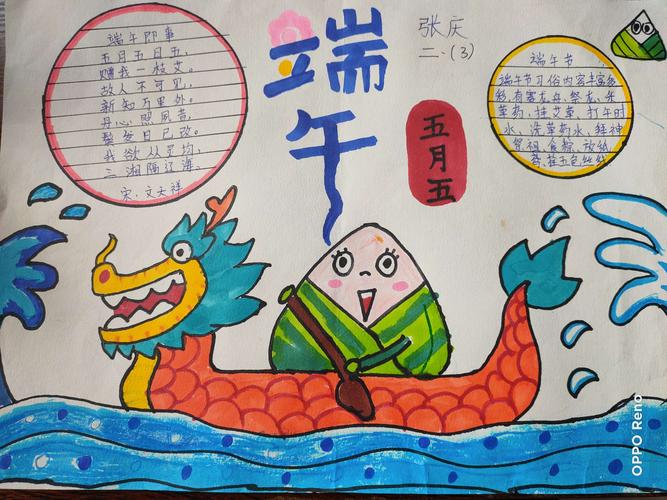 端午即事
五月五日五,
赠我一枝艾。
故人不可见,
新知万里外。
丹心照夙昔,
鬓发日已改。
我欲从灵均,
三湘隔辽海。
宋:文天祥
端午
张庆
二.(3)
五月五
端午节
端午节习俗内容丰富多
彩,有赛龙舟、祭龙、采
草药、挂艾草、打午时
水、洗草药水、拜神
祭祖、食粽、放纸
鸢、拴五色丝线
OPPO Reno